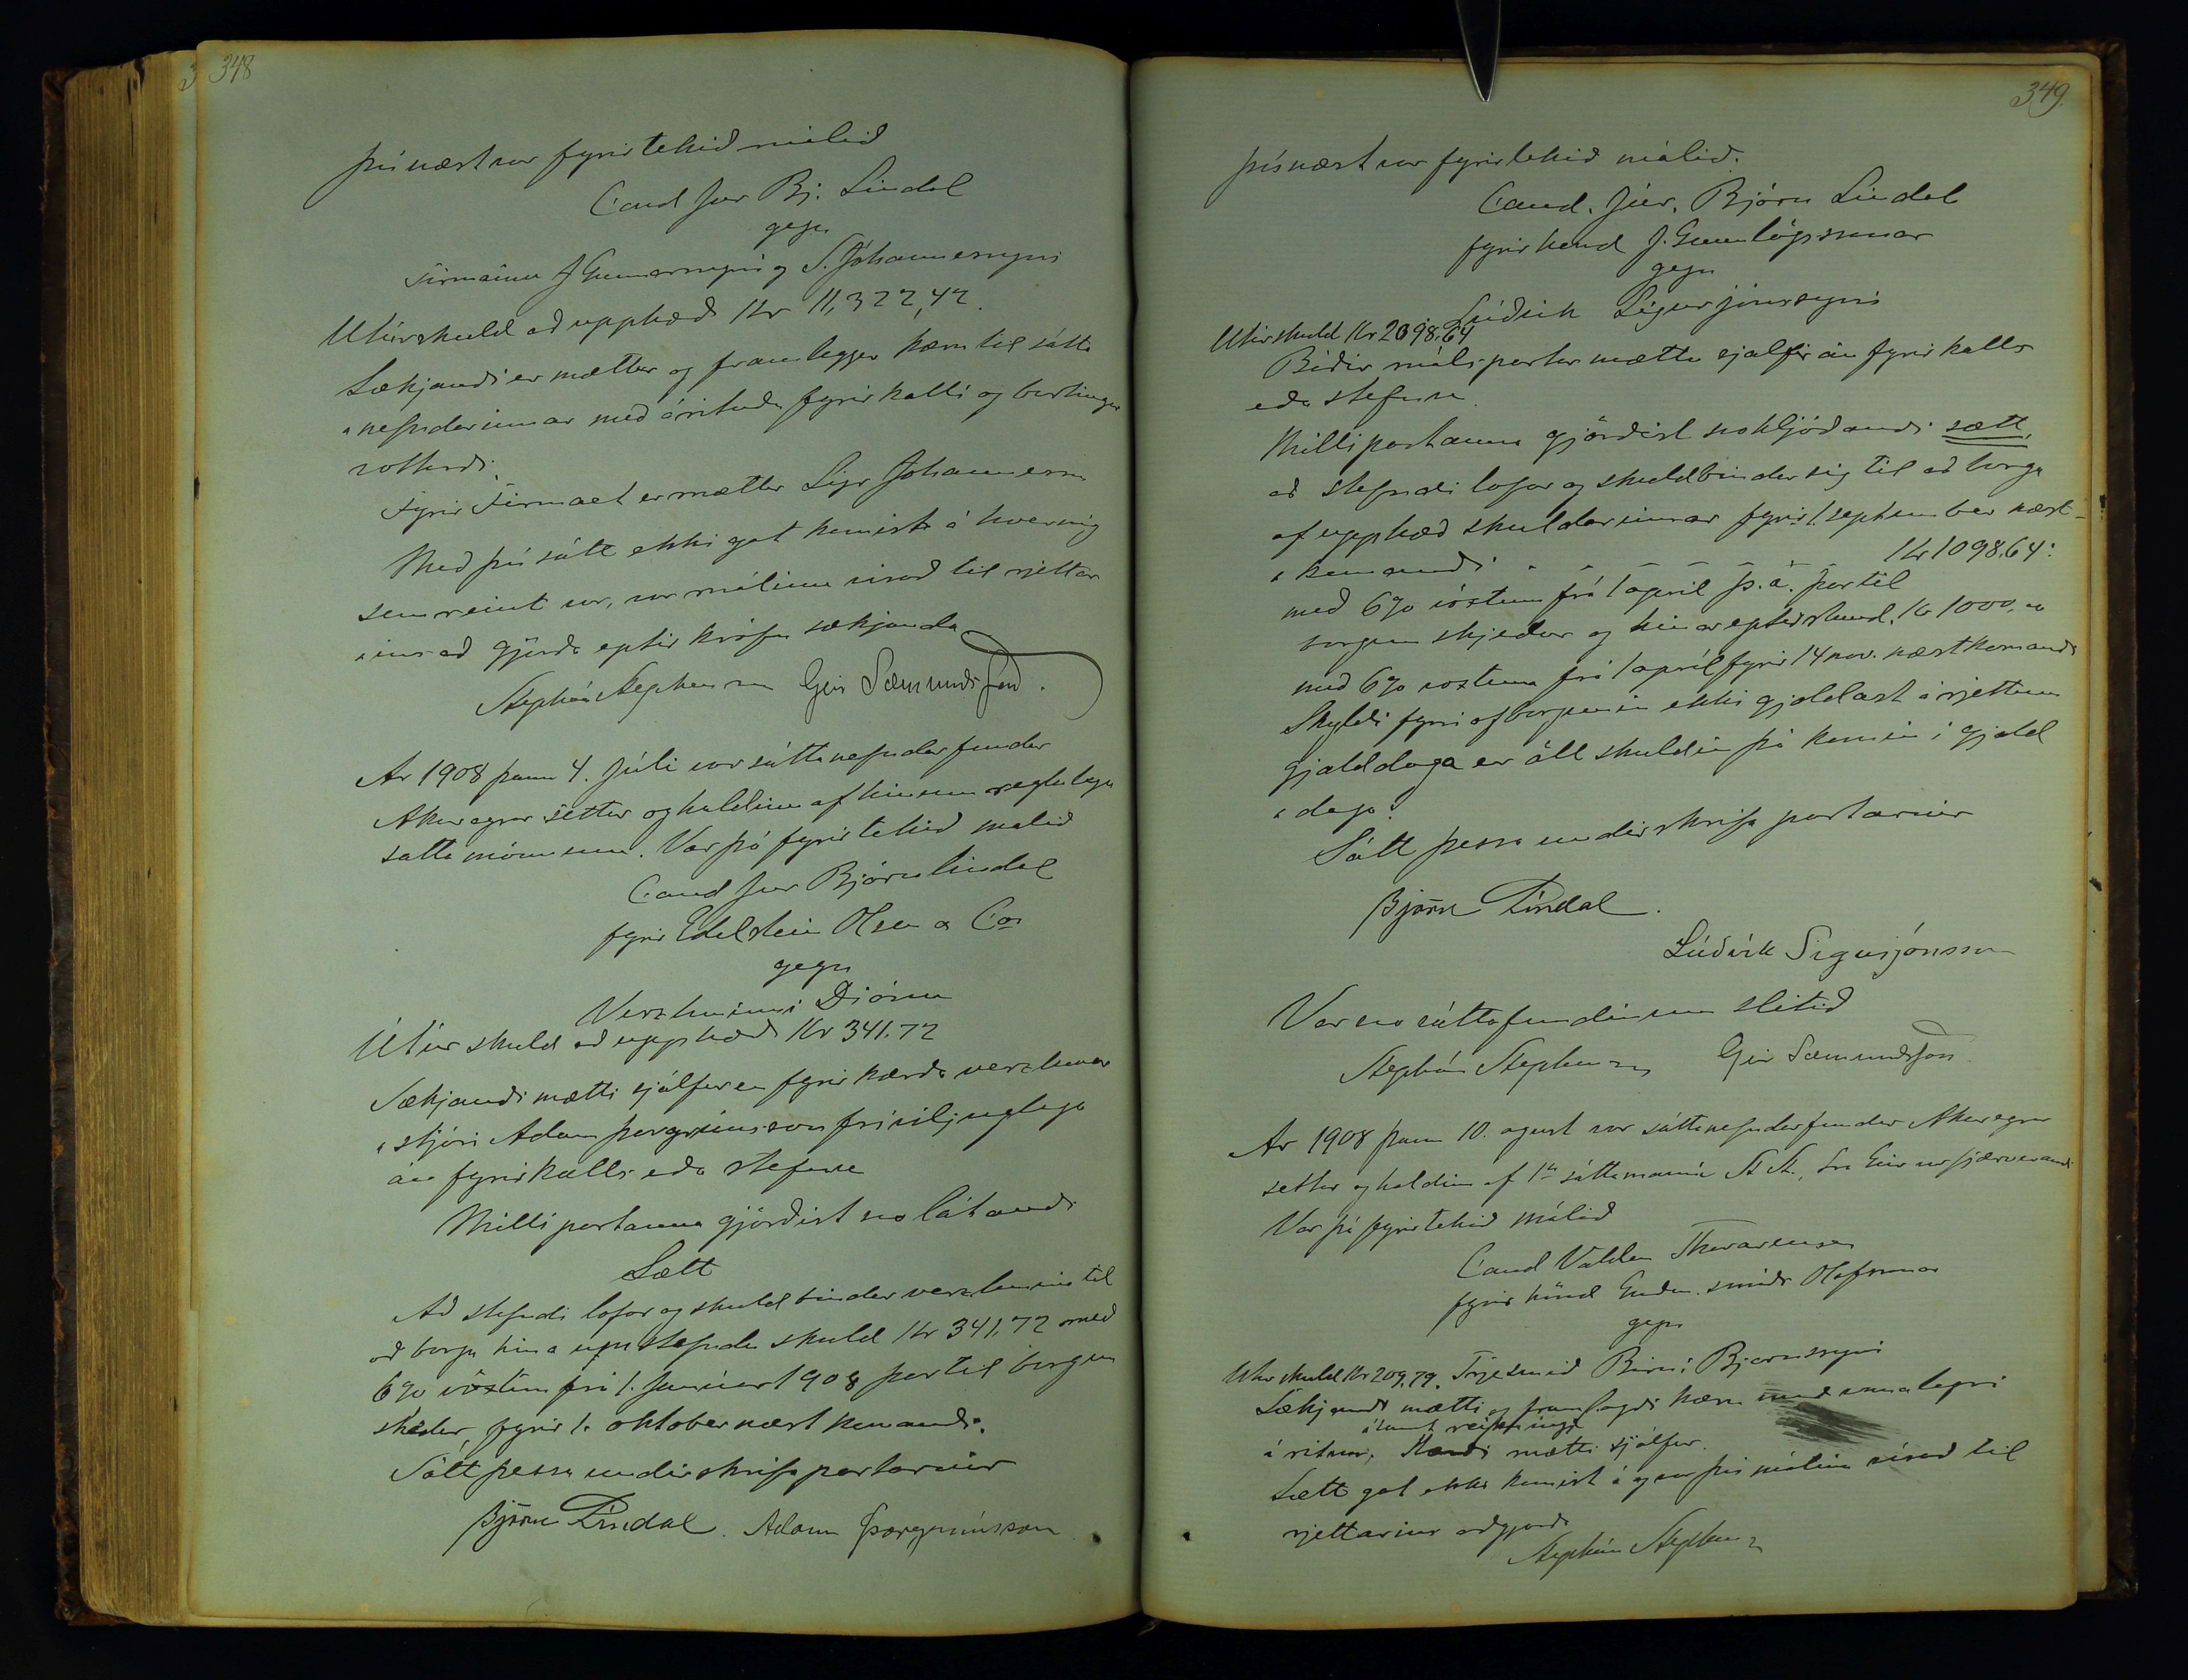 348
því næst var fyrirtekið málið
Cand jur Bj. Lindal
gegn
Firmainu J Gunnarssyni og S. Jóhannessyni
Utúr skuld að upphæð Kr 11,322,42.
Sækjandi er mættur og framleggur kæru til sátta
nefndarinnar með árituðu fyrirkalli og birtingar
vottorði.
Fyrir Firmaet er mættur Sigr Johannesson
Með því sátt ekki gat komist á hvernig
sem reint var, var málinu vísað til rjettar
ins að gjörða eptir kröfu sækjanda
Stephán Stephensen Geir Sæmundsson.
Ar 1908 þann 4. Júli var sáttanefndar fundur
Akureyrar settur og haldinn af hinum reglulegu
sátta mönnum. Var þá fyrirtekið malið
Cand jur Björn Lindal
fyrir Edelstein Olsen & Co
gegn
Verzluninni Björn
Út úr skuld að upphæð Kr 341.72
Sækjandi mætti sjálfur en fyrir kærða verzlunar
stjóri Adam Þorgrímsson fríviljuglega
án fyrirkalls eða stefnu
Milli partanna gjörðist svo látandi
Sætt
Að stefndi lofar og skuldbindur verzlunina til
að borga hina umstefndu skuld Kr 341.72 með
6% vöxtum frá 1. Januar 1908 þar til borgun
skeður, fyrir 1. oktober næst komandi.
Sátt þessa undirskrifa partarnir
Björn Líndal. Adam Þorgrímsson
349.
því næst var fyrirtekið málið.
Cand. júr. Björn Lindal
fyrir hönd J. Gunnlögssonar
gegn
Lúðvik Sigurjónssyni
Utúr skuld Kr 2098.64
Báðir málspartar mættu sjálfir án fyrirkalls
eða stefnu.
Milli partanna gjörðist svohljóðandi sætt,
að stefndi lofar og skuldbindur sig til að borga
af upphæð skuldarinnar fyrir 1. september næst-
komandi - - - - - Kr 1098,64:
með 6% vöxtum frá 1 april þ. á. þar til
borgun skjeður og hinar eptirstand. Kr 1000,00
með 6% vöxtum frá 1 apríl fyrir 14 nov. næstkomandi
Skyldi fyrri afborgunin ekki gjaldast á rjettum
gjalddaga er öll skuldin þá komin í gjald
daga.
Sátt þessa undirskrifa partarnir
Björn Líndal.
Lúðvík Sigurjónsson
Var svo sáttafundinum slitið
Stephán Stephensen Geir Sæmundsson
Ar 1908 þann 10. agust var sáttanefndarfundur Akureyrar
settur og haldinn af 1ta sáttamanni St St., Sra Geir var fjærverandi
Var þá fyrirtekið málið
Cand Valdm Thorarensen
fyrir hönd Guðm. smiðs Olafssonar
gegn
Utúr skuld Kr 209.79. Trjesmið Birni Bjarnssyni
Sækjandi mætti og framlagði kæru með vanalegri
ásamt reikningi
áritun, Kærði mætti sjálfur.
Sætt gat ekki komist á og var því málinu vísað til
rjettarins aðgjörða
Stephán Stephensen